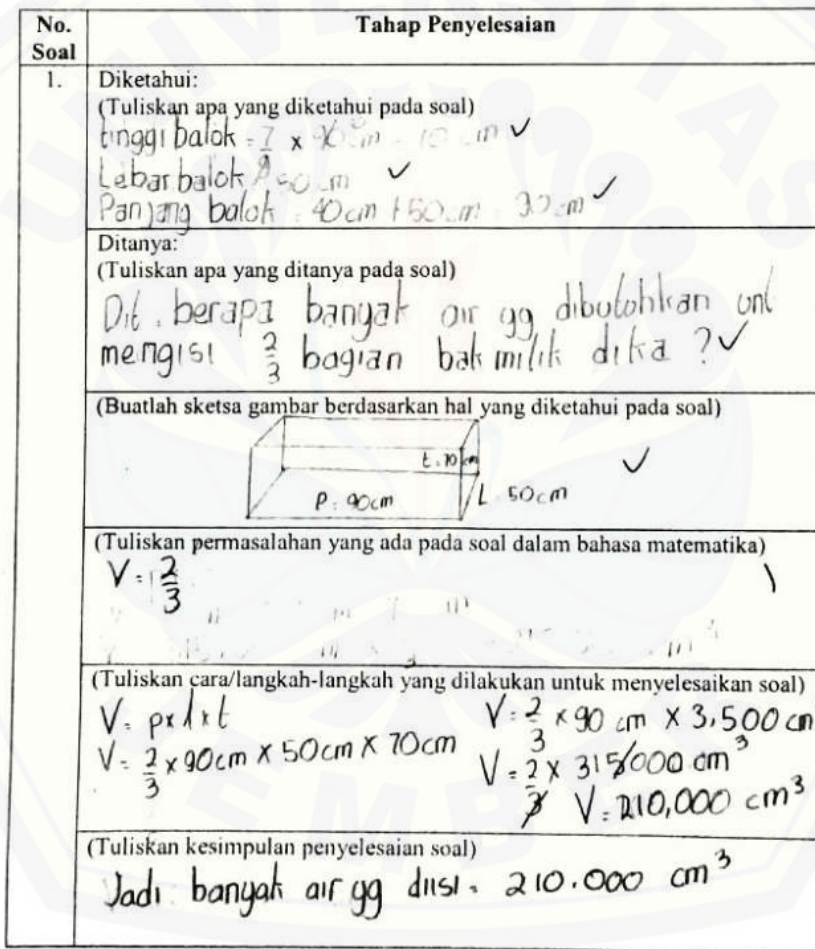 No. Soal
Tahap Penyelesaian
1.
Diketahui:
(Tuliskan apa yang diketahui pada soal)
tinggi balok = 7/9 × 90 cm = 70 cm ✓
Lebar balok = 50 cm ✓
Panjang balok = 40 cm + 50 cm = 90 cm ✓
Ditanya:
(Tuliskan apa yang ditanya pada soal)
Dit. berapa banyak air yg dibutohkan unt
mengisi 2/3 bagian bak milik dika ? ✓
(Buatlah sketsa gambar berdasarkan hal yang diketahui pada soal)
t. 70 cm
P: 90cm
L 50cm
✓
(Tuliskan permasalahan yang ada pada soal dalam bahasa matematika)
V = 2/3
(Tuliskan cara/langkah-langkah yang dilakukan untuk menyelesaikan soal)
V = p x l x t
V = 2/3 x 90cm x 50cm x 70cm
V = 2/3 x 90 cm x 3.500 cm
V = 2/3 x 315000 cm³
V = 210,000 cm³
(Tuliskan kesimpulan penyelesaian soal)
Jadi banyak air yg diisi = 210.000 cm³